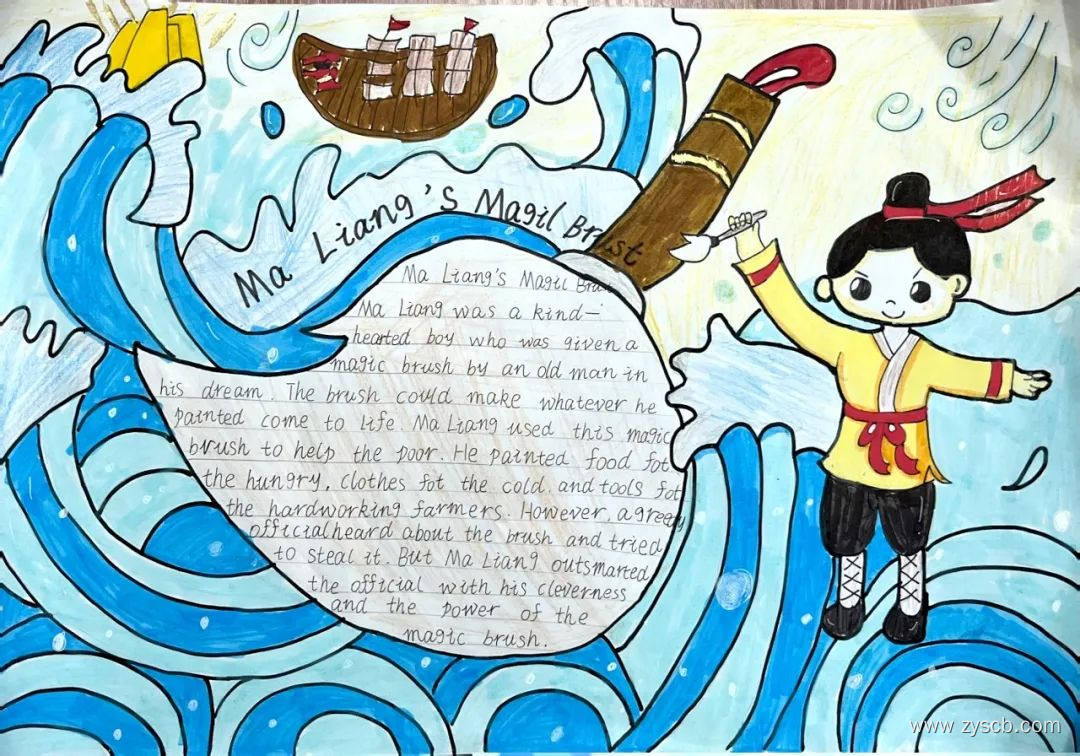 Ma Liang's Magil Brust
Ma Liang's Magic
Ma Liang was a kind-
hearted boy who was given a
magic brush by an old man in
his dream. The brush could make whatever he
painted come to life. Ma Liang used this magic
brush to help the poor. He painted food fot
the hungry, clothes fot the cold, and tools fot
the hardworking farmers. However, a greey
official heard about the brush and tried
to steal it. But Ma Liang outsmarted
the official with his cleverness
and the power of the
magic brush.
www.zyscb.com